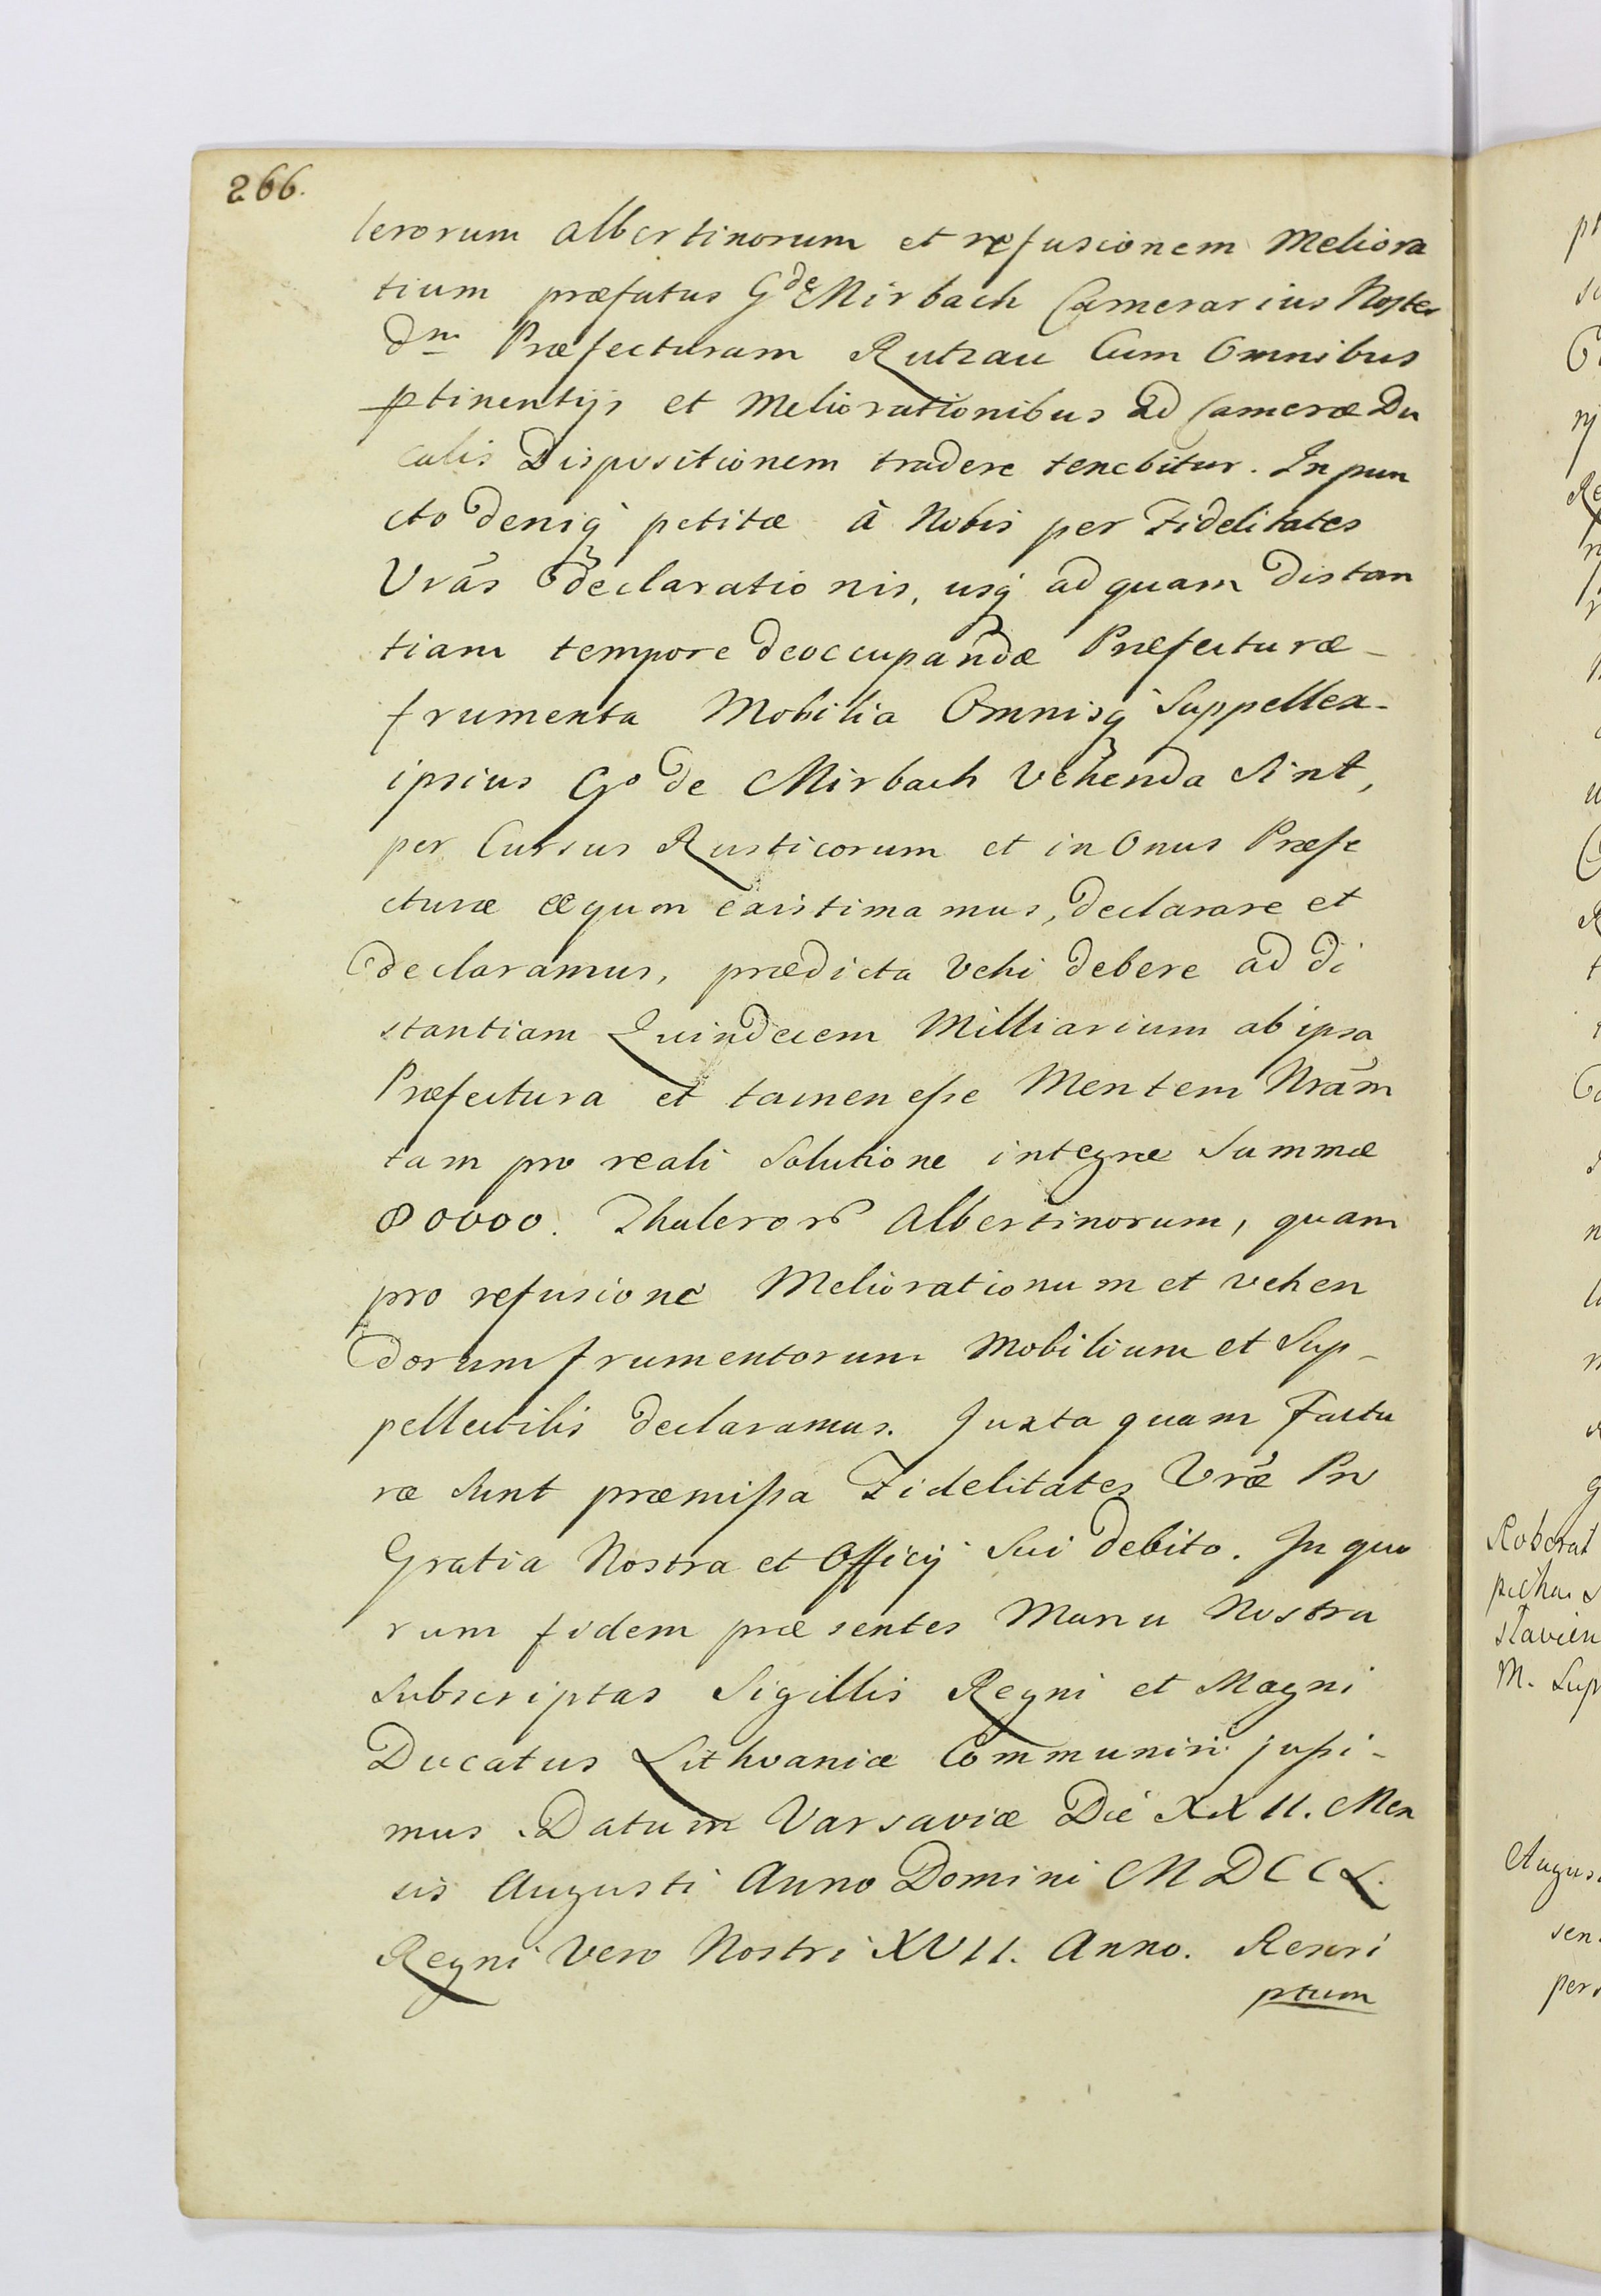 266.
lerorum albertinorum et refusionem Meliora
tium præfatus Gde Mirbach Camerarius Noster
dm Præfecturam Rutzau Cum Omnibus
ptinentijs et Meliorationibus ad Cameræ Du
calis Dispositionem tradere tenebitur. In pun
cto deniq petitæ à Nobis per Fidelitates
Vrãs declarationis, usq ad quam distan
tiam tempore deoccupandæ Præfecturæ
frumenta Mobilia Omnisq Suppellex
ipsius Go de Mirbach Vehenda Sint,
per Cursus Rusticorum et in Onus Præfe
cturæ æqum existimamus, declarare et
declaramus, prædicta Vehi debere ad di
stantiam Quindecem Milliarium ab ipsa
Præfectura et tamen eſse Mentem Nrãm
tam pro reali Solutione integræ Summæ
80000. Thaleror Albertinorum, quam
pro refusione Meliorationum et vehen
dorum frumentorum Mobilium et Sup-
pellectilis declaramus. Juxta quam Factu
ræ Sunt præmiſsa Fidelitates Vræ Pro
Gratia Nostra et Officij Sui debito. In quo
rum fidem præsentes Manu Nostra
Subscriptas Sigillis Regni et Magni
Ducatus Lithvaniæ Communiri juſsi-
mus. Datum Varsaviæ Die XXII. Men
sis Augusti Anno Domini MDCCL.
Regni Vero Nostri XVII. Anno. Rescri
ptum
Roborat
M. Sup
Augus
sen
per